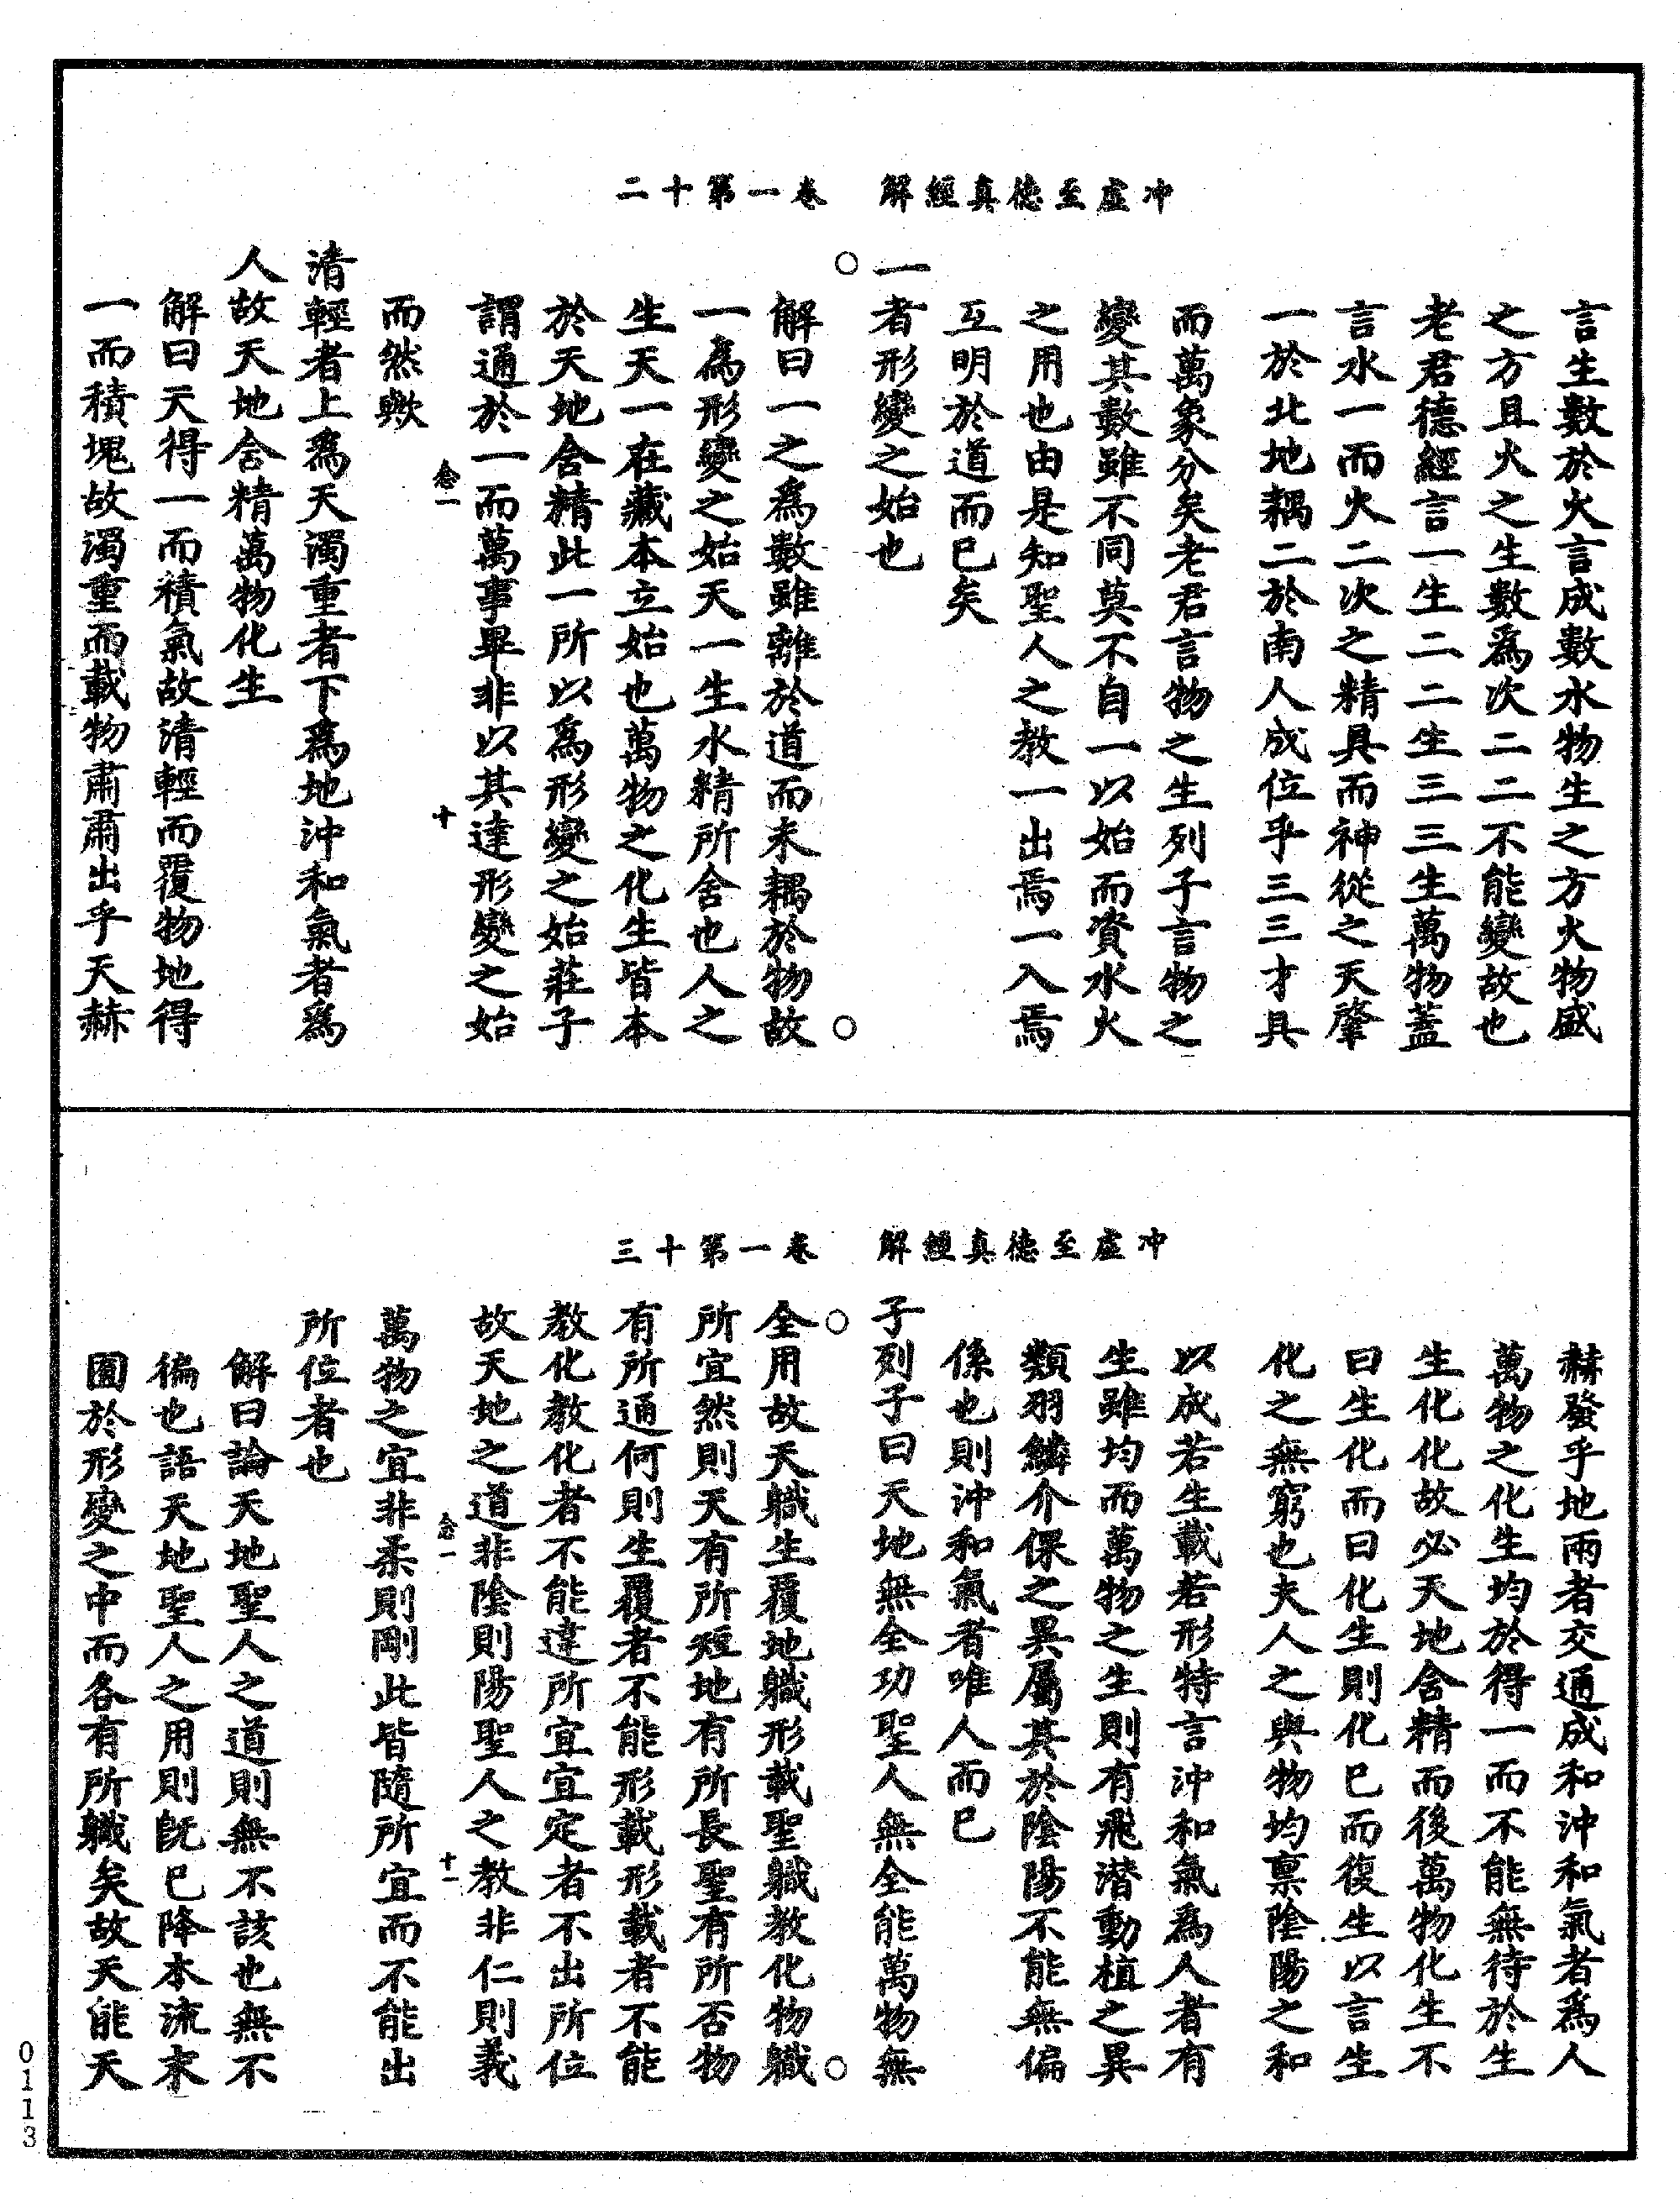 冲虛至德真經解　卷一第十二
言生數於火言成數水物生之方火物盛
之方且火之生數爲次二二不能變故也
老君德經言一生二二生三三生萬物蓋
言水一而火二次之精具而神從之天肇
一於北地耦二於南人成位乎三三才具
而萬象分矣老君言物之生列子言物之
變其數雖不同莫不自一以始而資水火
之用也由是知聖人之教一出焉一入焉
互明於道而已矣
一者形變之始也
○　○
解曰一之爲數雖離於道而未耦於物故
一爲形變之始天一生水精所舍也人之
生天一在藏本立始也萬物之化生皆本
於天地含精此一所以爲形變之始莊子
謂通於一而萬事畢非以其達形變之始
念一　十
而然歟
清輕者上爲天濁重者下爲地沖和氣者爲
人故天地含精萬物化生
解曰天得一而積氣故清輕而覆物地得
一而積塊故濁重而載物肅肅出乎天赫
冲虛至德真經解　卷一第十三
赫發乎地兩者交通成和沖和氣者爲人
萬物之化生均於得一而不能無待於生
生化化故必天地含精而後萬物化生不
曰生化而曰化生則化已而復生以言生
化之無窮也夫人之與物均稟陰陽之和
以成若生載若形特言沖和氣爲人者有
生雖均而萬物之生則有飛潛動植之異
類羽鱗介倮之異屬其於陰陽不能無偏
係也則沖和氣者唯人而已
子列子曰天地無全功聖人無全能萬物無
○　○
全用故天職生覆地職形載聖職教化物職
所宜然則天有所短地有所長聖有所否物
有所通何則生覆者不能形載形載者不能
教化教化者不能違所宜宜定者不出所位
故天地之道非陰則陽聖人之教非仁則義
念一　十一
萬物之宜非柔則剛此皆隨所宜而不能出
所位者也
解曰論天地聖人之道則無不該也無不
徧也語天地聖人之用則旣已降本流末
囿於形變之中而各有所職矣故天能天
0113